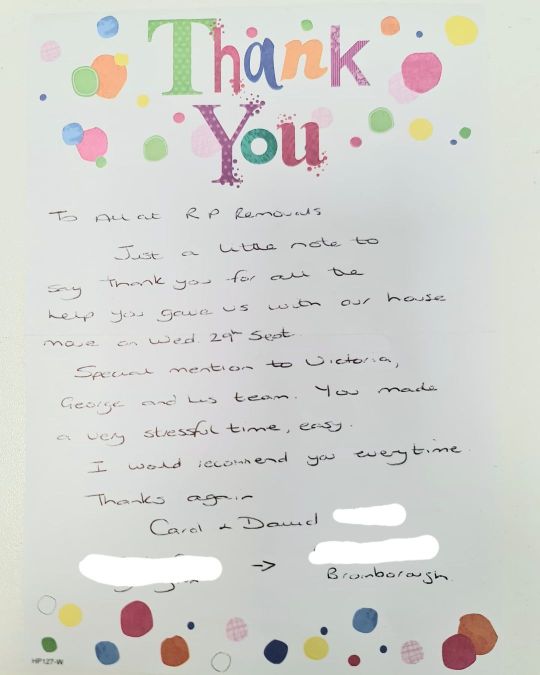 Thank
You
To All at R P Removals
Just a little note to
say thank you for all the
help you gave us with our house
move on Wed. 29th Sept.
Special mention to Victoria,
George and his team. You made
a very stressful time, easy.
I would recommend you everytime.
Thanks again
Carol + David
→
Bromborough.
HP127-W